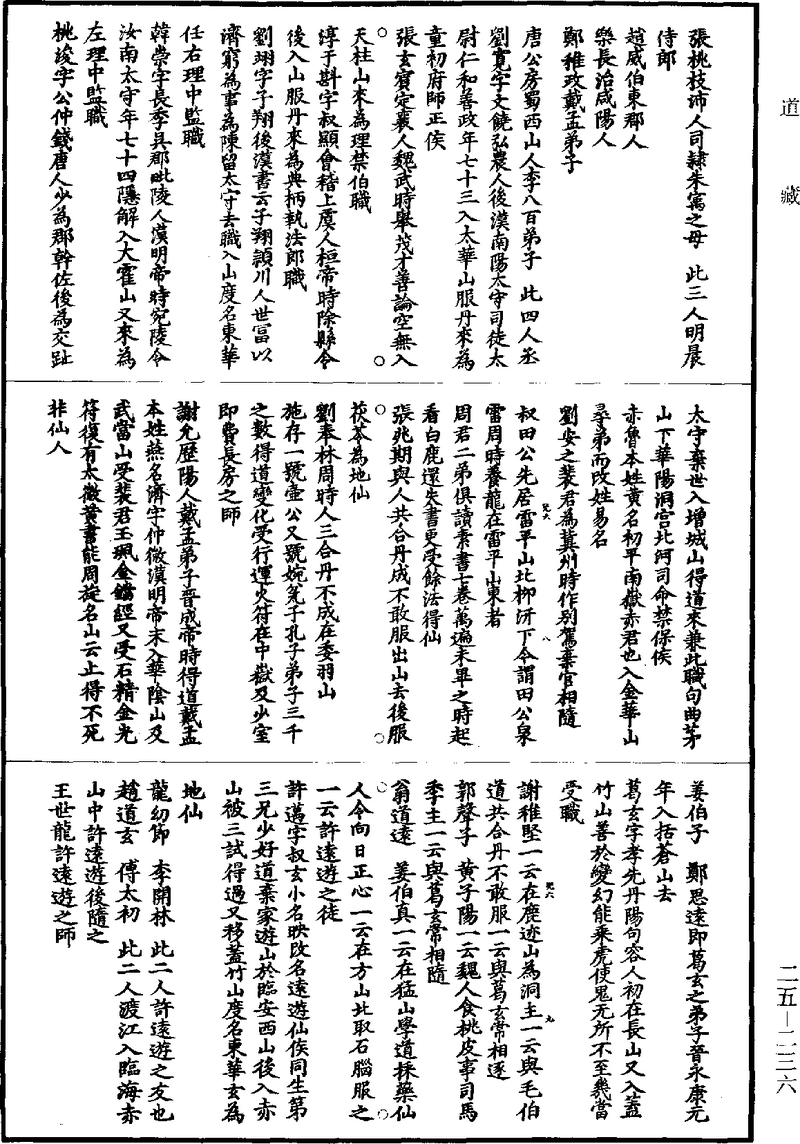 道藏
張桃枝沛人司隸朱寓之母　此三人明晨
侍郎
趙威伯東郡人
樂長治咸陽人
鄭稚政戴孟弟子
唐公房蜀西山人李八百弟子　此四人丞
劉寬字文饒弘農人後漢南陽太守司徒太
尉仁和善政年七十三入太華山服丹來為
童初府師正侯
張玄賓定襄人魏武時舉茂才善論空無入
天柱山來為理禁伯職
淳于斟字叔顯會稽上虞人桓帝時除縣令
後入山服丹來為典柄執法郎職
劉翊字子翔後漢書云子翔潁川人世富以
濟窮為事為陳留太守去職入山度名東華
任右理中監職
韓崇字長季吳郡毗陵人漢明帝時宛陵令
汝南太守年七十四隱解入大霍山又來為
左理中監職
桃俊字公仲錢唐人少為郡幹佐後為交趾
太守棄世入增城山得道來兼此職句曲茅
山下華陽洞宮北河司命禁保侯
赤魯本姓黃名初平南嶽赤君也入金華山
尋弟而改姓易名
劉安之裴君為冀州時作別駕棄官相隨
叔田公先居雷平山北柳汧下今謂田公泉
雷周時養龍在雷平山東者
周君二弟俱讀素書七卷萬遍未畢之時起
看白鹿還失書更受餘法得仙
張兆期與人共合丹成不敢服出山去後服
茯苓為地仙
劉奉林周時人三合丹不成在委羽山
施存一號壺公又號婉盆子孔子弟子三千
之數得道變化受行運火符在中嶽及少室
即費長房之師
謝允歷陽人戴孟弟子晉成帝時得道戴孟
本姓燕名濟字仲微漢明帝末入華陰山及
武當山受裴君玉珮金鐺經又受石精金光
符復有太微黃書能周旋名山云止得不死
非仙人
姜伯子　鄭思遠即葛玄之弟子晉永康元
年入括蒼山去
葛玄字孝先丹陽句容人初在長山又入蓋
竹山善於變幻能乘虎使鬼无所不至幾當
受職
謝稚堅一云在鹿迹山為洞主一云與毛伯
道共合丹不敢服一云與葛玄常相逐
郭聲子　黃子陽一云魏人食桃皮事司馬
季主一云與葛玄常相隨
翁道遠　姜伯真一云在猛山學道採藥仙
人令向日正心一云在方山北取石腦服之
一云許遠遊之徒
許邁字叔玄小名映改名遠遊仙侯同生第
三兄少好道棄家遊山於臨安西山後入赤
山被三試得過又移蓋竹山度名東華玄為
地仙
龍幼節　李開林　此二人許遠遊之友也
趙道玄　傅太初　此二人渡江入臨海赤
山中許遠遊後隨之
王世龍許遠遊之師
二五—二三六